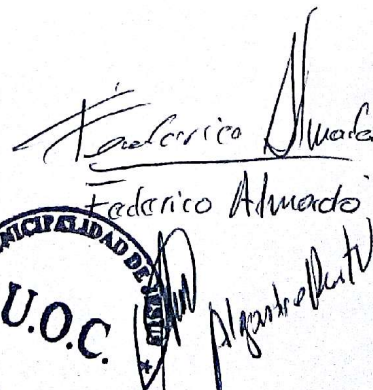 Federico Almada
Federico Almado
MUNICIPALIDAD DE JESUS
U.O.C.